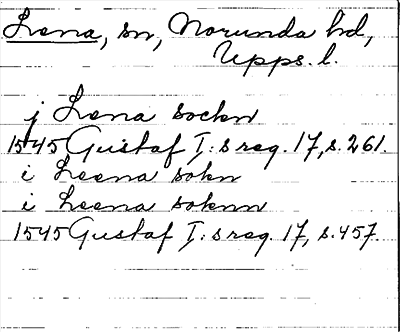 Lena, sn, Norunda hd,
Upps. l.
j Lena sockn
1545 Gustaf I:s reg. 17, s. 261.
i Leena sokn
i Leena soknn
1545 Gustaf I:s reg. 17, s. 457